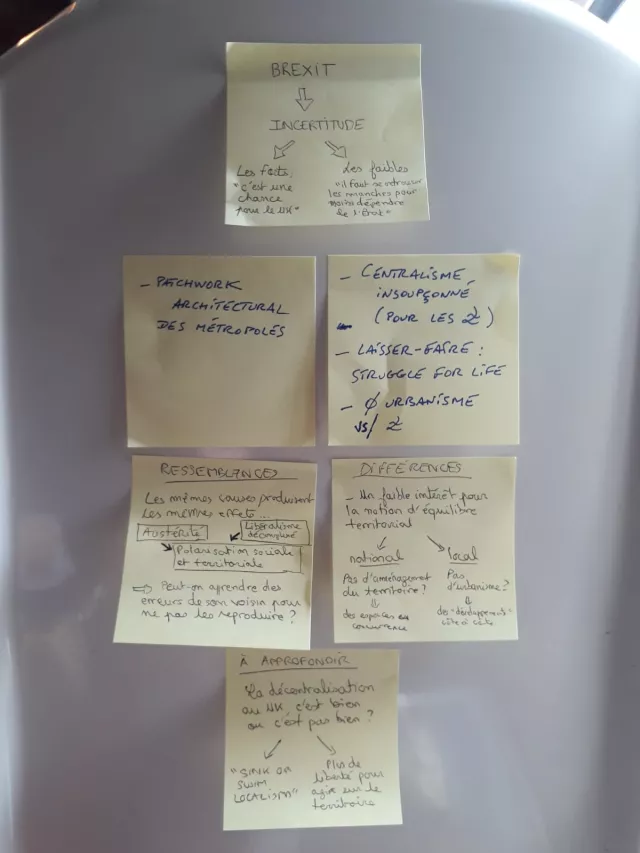 BREXIT
INCERTITUDE
Les forts,
"c'est une
chance
pour le UK"
Les faibles
"il faut se retrousser
les manches pour
moins dépendre
de l'État"
- PATCHWORK
ARCHITECTURAL
DES MÉTROPOLES
- CENTRALISME
INSOUPÇONNÉ
(POUR LES
- LAISSER-FAIRE :
STRUGGLE FOR LIFE
- Ø URBANISME
vs/
RESSEMBLANCES
Les mêmes causes produisent
les mêmes effets...
Austérité
Libéralisme
décomplexé
Polarisation sociale
et territoriale
⇨ Peut-on apprendre des
erreurs de son voisin pour
ne pas les reproduire ?
DIFFÉRENCES
- Un faible intérêt pour
la notion d'équilibre
territorial
national
Pas d'aménagement
du territoire ?
des espaces en
concurrence
local
Pas
d'urbanisme ?
des "développements"
côte à côte
À APPROFONDIR
La décentralisation
au UK c'est bien
ou c'est pas bien ?
"SINK OR
SWIM
LOCALISM"
Plus de
liberté pour
agir sur le
territoire